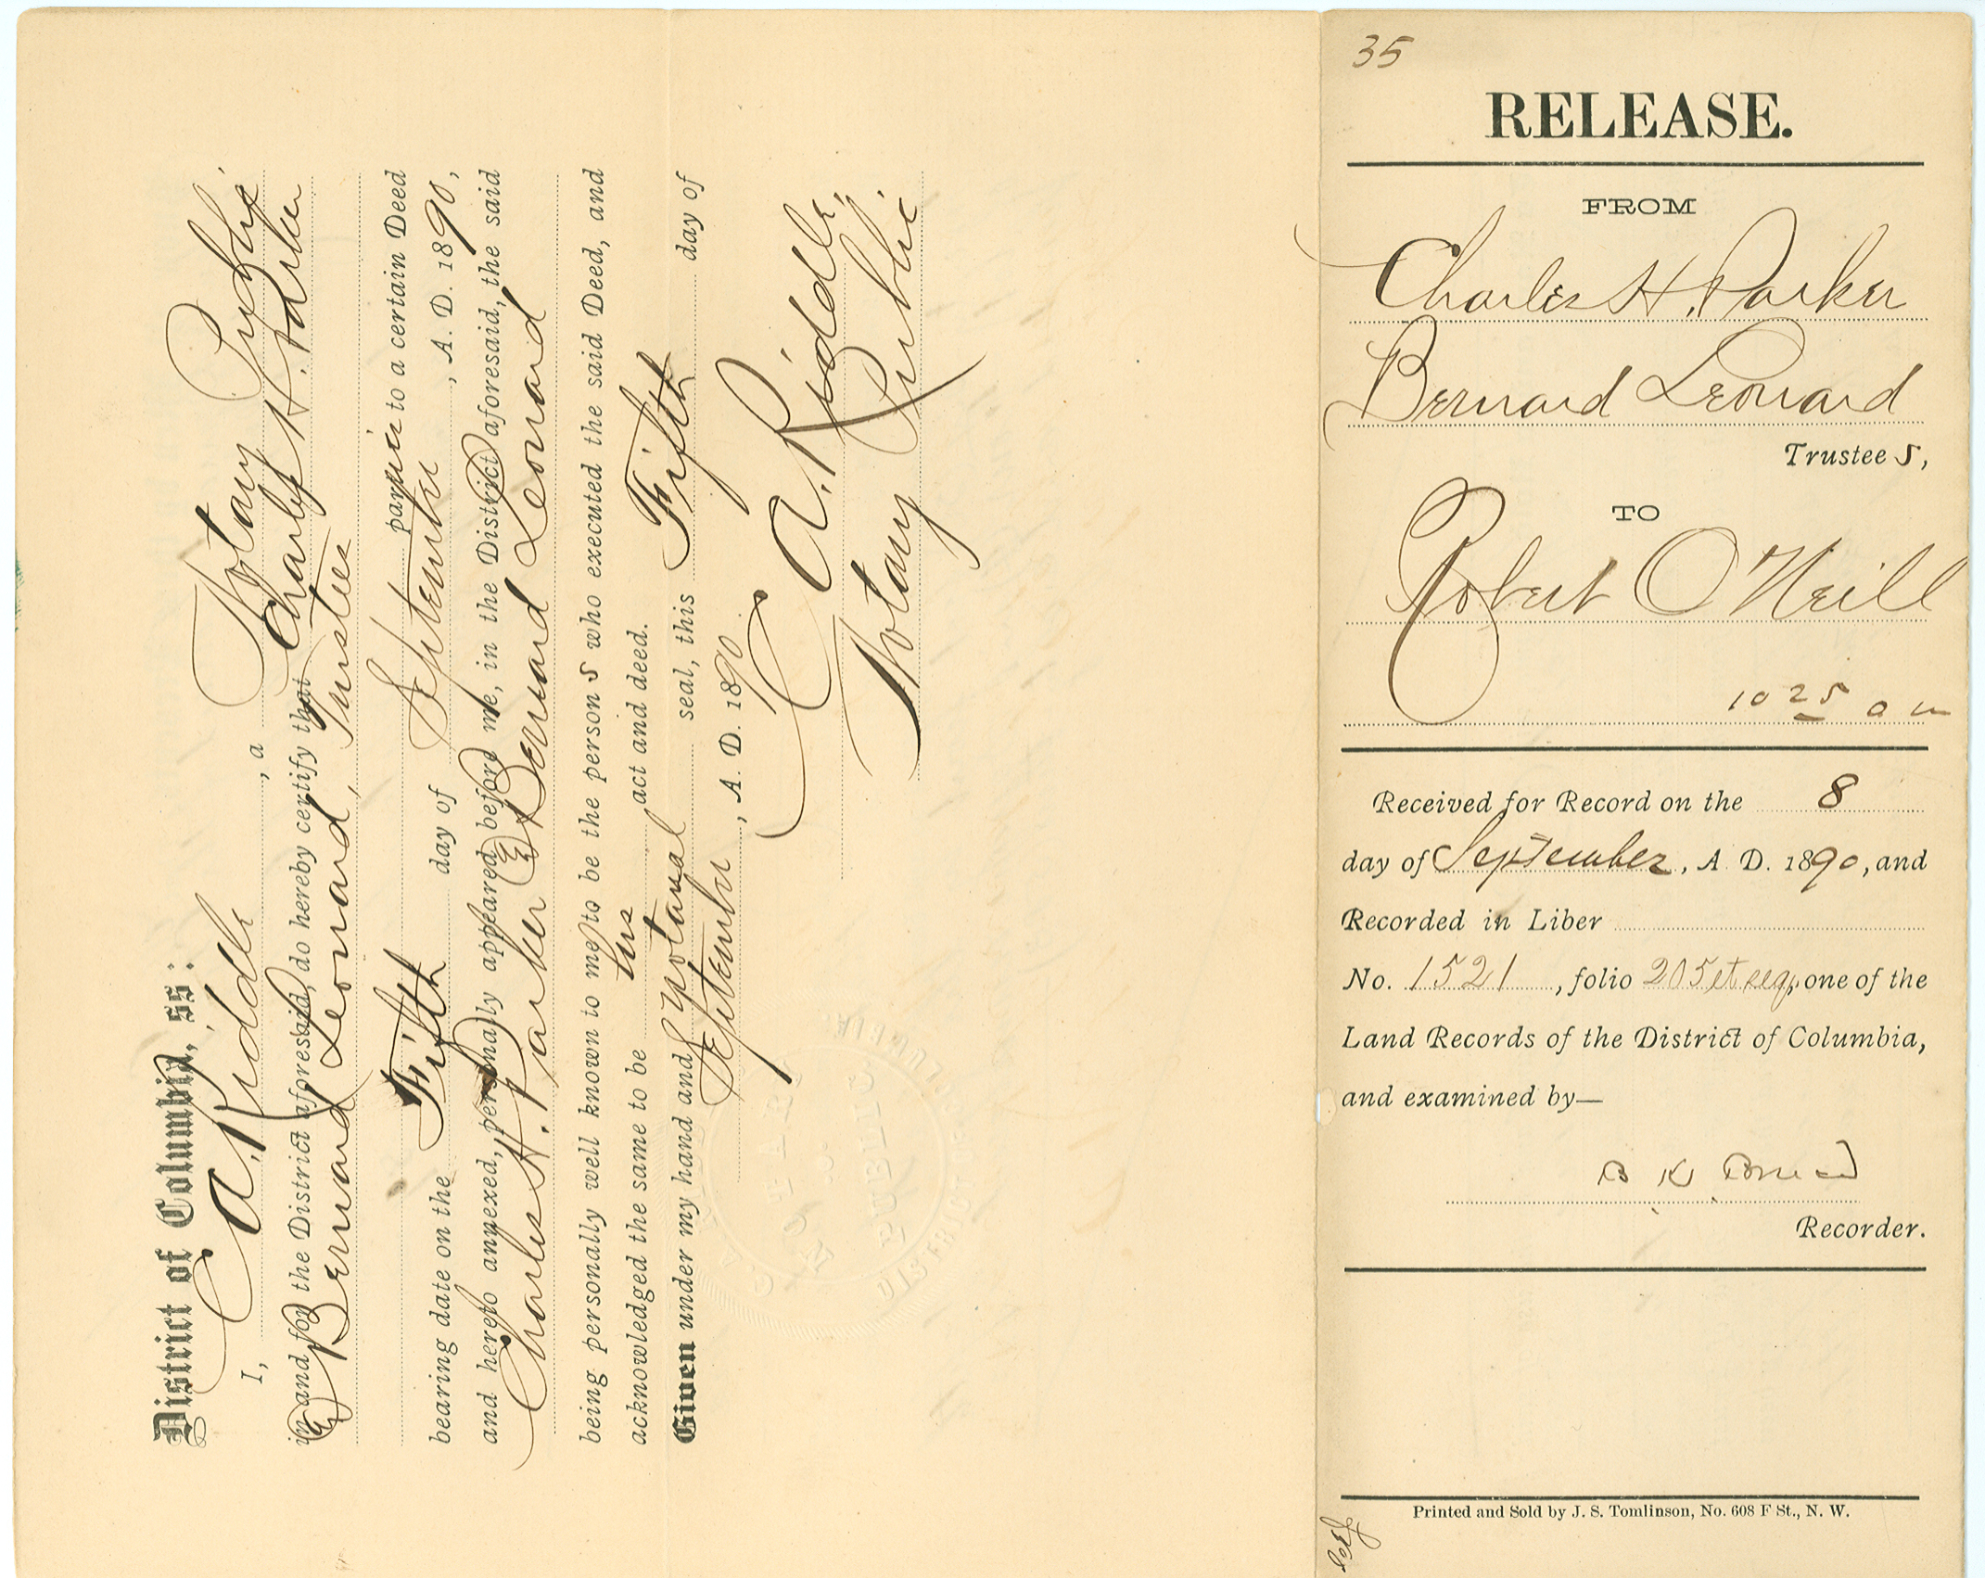 District of Columbia, ss:
I, A. Riddle, a Notary Public
in and for the District aforesaid, do hereby certify that Charles H. Parker
& Bernard Leonard, Trustees
parties to a certain Deed
bearing date on the Fifth day of September, A. D. 1890,
and hereto annexed, personally appeared before me, in the District aforesaid, the said
Charles H. Parker & Bernard Leonard
being personally well known to me to be the person s who executed the said Deed, and
acknowledged the same to be their act and deed.
Given under my hand and notarial seal, this Fifth day of
September, A. D. 1890.
A. Riddle,
Notary Public
NOTARY
PUBLIC
DISTRICT OF COLUMBIA
35
RELEASE.
FROM
Charles H. Parker
Bernard Leonard
Trustee s,
TO
Robert O'Neill
10 25 a m
Received for Record on the 8
day of September, A. D. 1890, and
Recorded in Liber
No. 1521, folio 205 et seq, one of the
Land Records of the District of Columbia,
and examined by—
B K Bruce
Recorder.
Printed and Sold by J. S. Tomlinson, No. 608 F St., N. W.